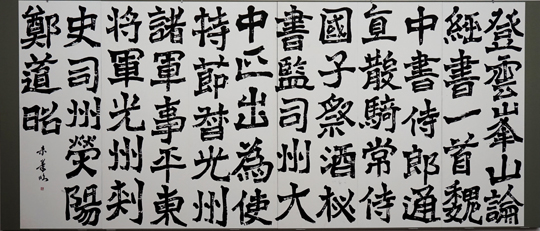 登雲峯山論
經書一首魏
中書侍郎通
直散騎常侍
國子祭酒秘
書監司州大
中正出為使
持節督光州
諸軍事平東
將軍光州刺
史司州熒陽
鄭道昭